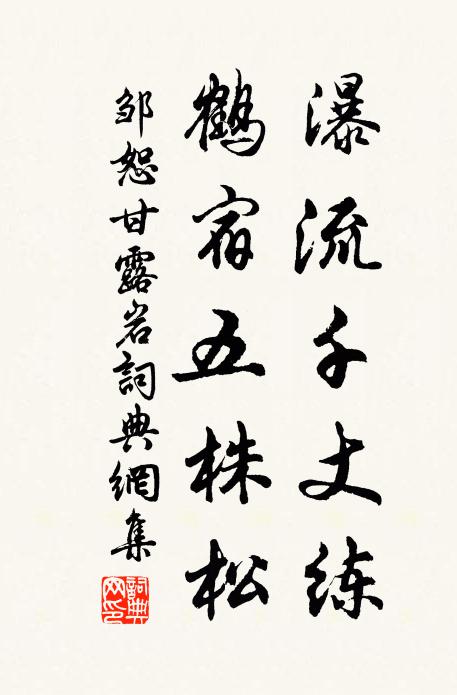 瀑流千丈练
鹤宿五株松
邹恕甘露岩詞典網集
詞典网印